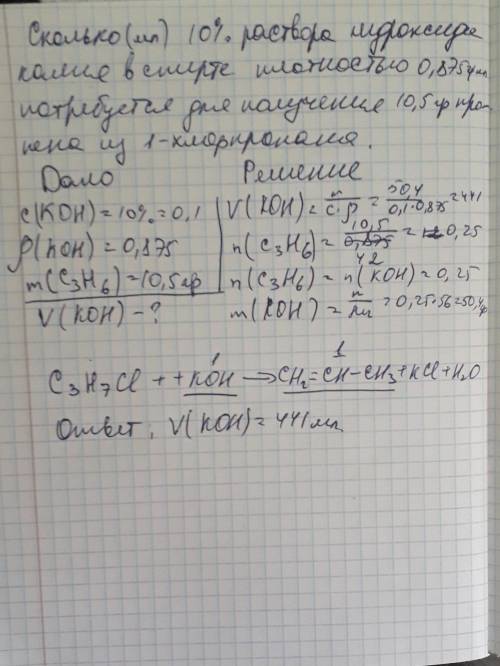 Сколько (мл) 10% раствора гидроксида
калия в спирте плотностью 0,875 г/мл
потребуется для получения 10,5 гр про
пена из 1-хлорпропана.
Дано
Решение
c(KOH) = 10% = 0,1
ρ(KOH) = 0,875
m(C3H6) = 10,5 гр
V(KOH) - ?
V(KOH) = n/c·ρ = 504/0,1·0,875 = 441
n(C3H6) = 10,5/42 = 0,25
n(C3H6) = n(KOH) = 0,25
m(KOH) = n/M = 0,25·56=50,4 гр
1 1
C3H7Cl + + KOH → CH2=CH-CH3 + KCl + H2O
Ответ, V(KOH) = 441 мл